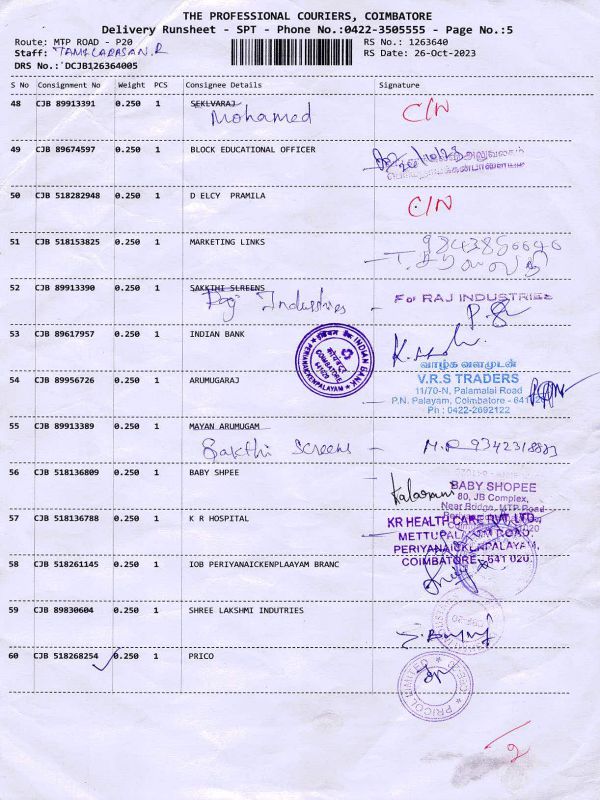 THE PROFESSIONAL COURIERS, COIMBATORE
Delivery Runsheet - SPT - Phone No.:0422-3505555 - Page No.:5
Route: MTP ROAD - P20
RS No.: 1263640
Staff: TAMILARASAN.R
RS Date: 26-Oct-2023
DRS No.: DCJB126364005
S No Consignment No Weight PCS Consignee Details Signature
48 CJB 89913391 0.250 1 SEKLVARAJ C/N
Mohamed
49 CJB 89674597 0.250 1 BLOCK EDUCATIONAL OFFICER
50 CJB 518282948 0.250 1 D ELCY PRAMILA C/N
51 CJB 518153825 0.250 1 MARKETING LINKS
52 CJB 89913390 0.250 1 SAKKTHI SLREENS
Raj Industries - For RAJ INDUSTRIES
53 CJB 89617957 0.250 1 INDIAN BANK
INDIAN BANK
PERIANAICKENPALAYAM
COIMBATORE
641020
54 CJB 89956726 0.250 1 ARUMUGARAJ
வாழ்க வளமுடன்
V.R.S TRADERS
11/70-N, Palamalai Road
P.N. Palayam, Coimbatore - 641020
Ph : 0422-2692122
55 CJB 89913389 0.250 1 MAYAN ARUMUGAM
Sakthi Screens - M.R 9342318883
56 CJB 518136809 0.250 1 BABY SHPEE
BABY SHOPEE
80, JB Complex,
Near Bridge, MTP Road
57 CJB 518136788 0.250 1 K R HOSPITAL
KR HEALTH CARE PVT. LTD.
METTUPALAYAM ROAD,
PERIYANAICKENPALAYAM,
COIMBATORE - 641 020.
58 CJB 518261145 0.250 1 IOB PERIYANAICKENPLAAYAM BRANC
59 CJB 89830604 0.250 1 SHREE LAKSHMI INDUTRIES
60 CJB 518268254 0.250 1 PRICO
PRICOL LIMITED
2